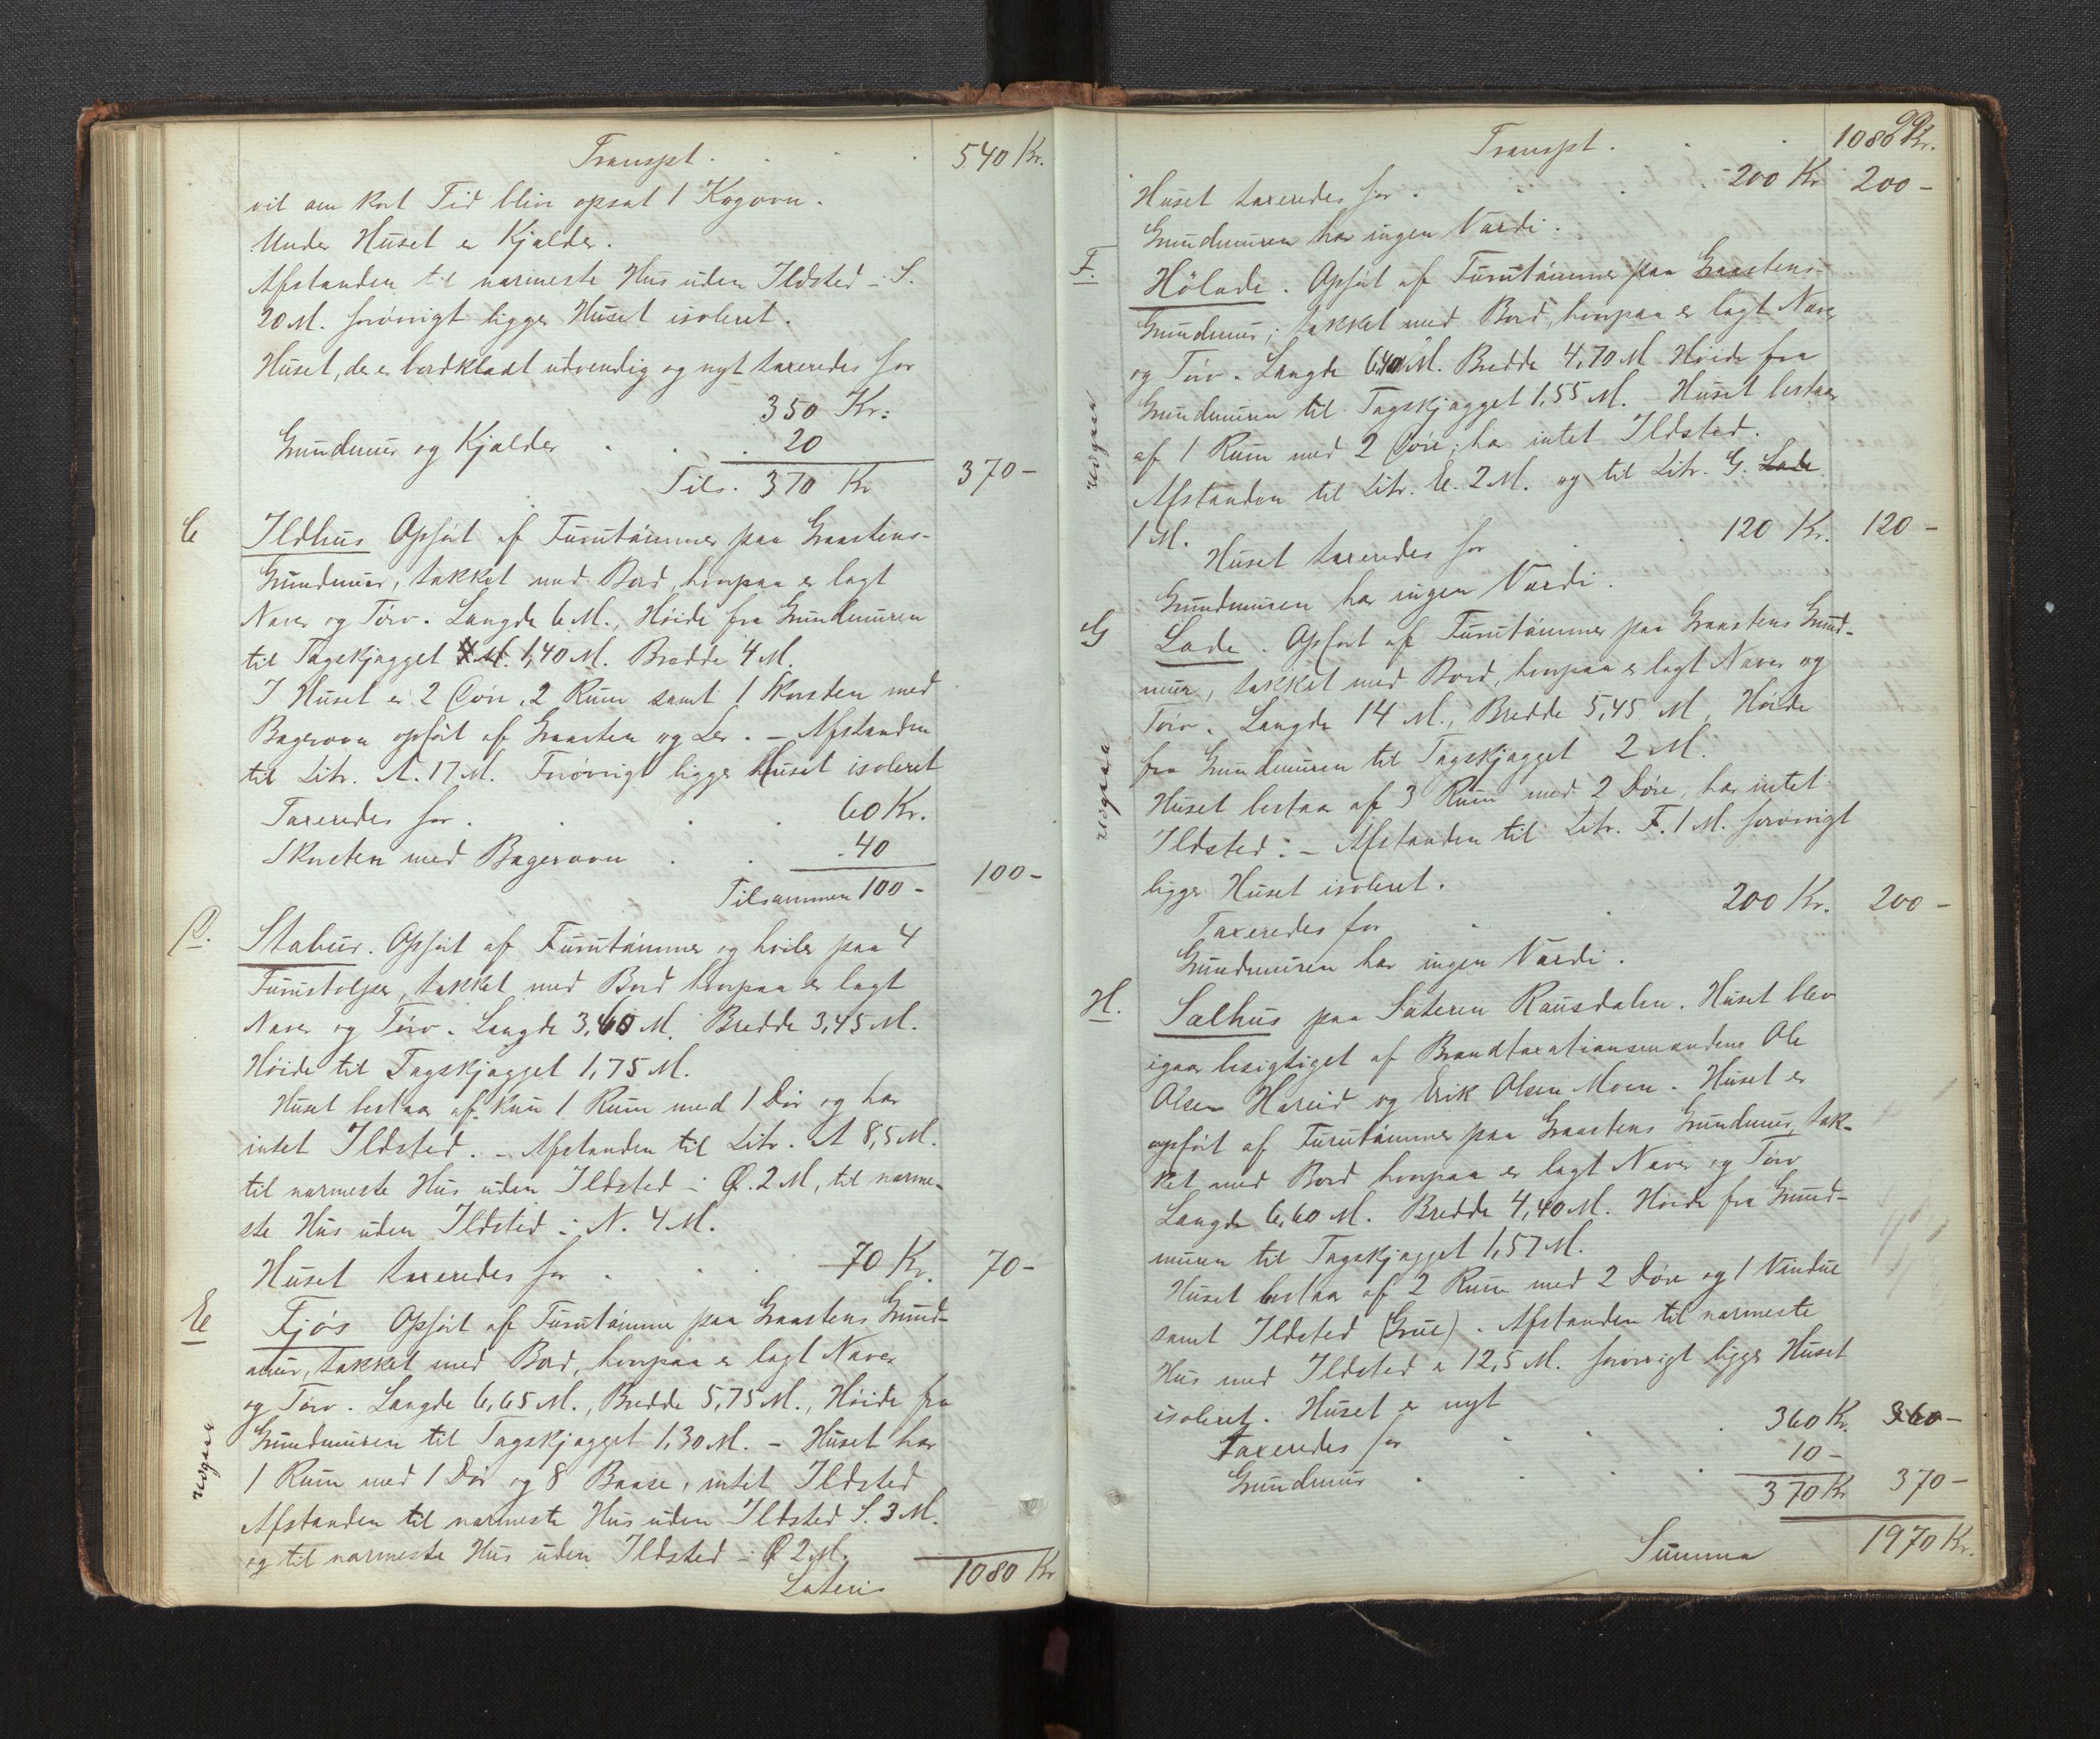 Transpt. . . . 540 Kr.
vil om kort Tid blive opsat 1 Kogovn.
Under Huset er Kjælder.
Afstanden til nærmeste Hus uden Ildsted i S.
20 M. forøvrigt ligger Huset isoleret.
Huset, der er bordklædt udvendig og nyt taxeredes for
350 Kr.
Grundmur og Kjælder . . . 20
Tils. 370 Kr 370 -
C Ildhus Opført af Furutømmer paa Graastens-
Grundmur, takket med Bord, hvorpaa er lagt
Næver og Törv. Længde 6 M., Høide fra Grundmuren
til Tagskjægget 1,40 M. Bredde 4 M.
I Huset er 2 Døre, 2 Rum samt 1 Skorsten med
Bagerovn opført af Graasten og Ler. - Afstanden
til Litr. A. 17 M. Forøvrigt ligger Huset isoleret
Taxeredes for . . . 60 Kr.
Skorsten med Bagerovn . . . 40
Tilsammen 100 - 100 -
D. Stabur. Opført af Furutømmer og hviler paa 4
Furustolper, takket med Bord hvorpaa er lagt
Næver og Törv. Længde 3,60 M. Bredde 3,45 M.
Høide til Tagskjægget 1,75 M.
Huset bestaar af kun 1 Rum med 1 Dør og har
intet Ildsted. - Afstanden til Litr. A 8,5 M.
til nærmeste Hus uden Ildsted i Ø. 2 M, til nærme-
ste Hus uden Ildsted i N. 4 M.
Huset taxeredes for . . . 70 Kr. 70 -
E Fjös Opført af Furutømmer paa Graastens Grund-
mur, takket med Bord, hvorpaa er lagt Næver
og Törv. Længde 6,65 M., Bredde 5,75 M., Høide fra
Grundmuren til Tagskjægget 1,30 M. - Huset har
1 Rum med 1 Dør og 8 Baase, intet Ildsted
Afstanden til nærmeste Hus uden Ildsted S. 3 M.
og til nærmeste Hus uden Ildsted i Ø 2 M.
Lateris 1080 Kr
udgaar
99
Transpt. . . 1080 Kr.
Huset taxeredes for . . . 200 Kr 200 -
Grundmuren har ingen Værdi.
F. Hölade. Opført af Furutømmer paa Graastens-
Grundmur, takket med Bord, hvorpaa er lagt Næver
og Törv. Længde 6,40 M. Bredde 4,70 M Høide fra
Grundmuren til Tagskjægget 1,55 M. Huset bestaar
af 1 Rum med 2 Døre; har intet Ildsted.
Afstanden til Litr. E. 2 M. og til Litr. G. Lade
1 M.
Huset taxeredes for . . 120 Kr. 120 -
Grundmuren har ingen Værdi.
udgaar
G Lade. Opført af Furutømmer paa Graastens Grund-
mur, takket med Bord, hvorpaa er lagt Næver og
Törv. Længde 14 M., Bredde 5,45 M, Høide
fra Grundmuren til Tagskjægget 2 M.
Huset bestaar af 3 Rum med 2 Døre, har intet
Ildsted. - Afstanden til Litr. F. 1 M. forøvrigt
ligger Huset isoleret.
Taxeredes for . . 200 Kr. 200 -
Grundmuren har ingen Værdi.
udgaar
H. Sælhus paa Sæteren Rausdalen. Huset blev
igaar besigtiget af Brandtaxationsmændene Ole
Olsen Hareid og Erik Olsen Moen. Huset er
opført af Furutømmer paa Graastens Grundmur, tak-
ket med Bord hvorpaa er lagt Næver og Törv
Længde 6,60 M. Bredde 4,40 M. Høide fra Grund-
muren til Tagskjægget 1,57 M.
Huset bestaar af 2 Rum med 2 Døre og 1 Vindue
samt Ildsted (Grue). Afstanden til nærmeste
Hus med Ildsted er 12,5 M. forøvrigt ligger Huset
isoleret. Huset er nyt
Taxeredes for . . . 360 Kr. 360 -
Grundmur . . . 10 -
370 Kr 370 -
Summa 1970 Kr.